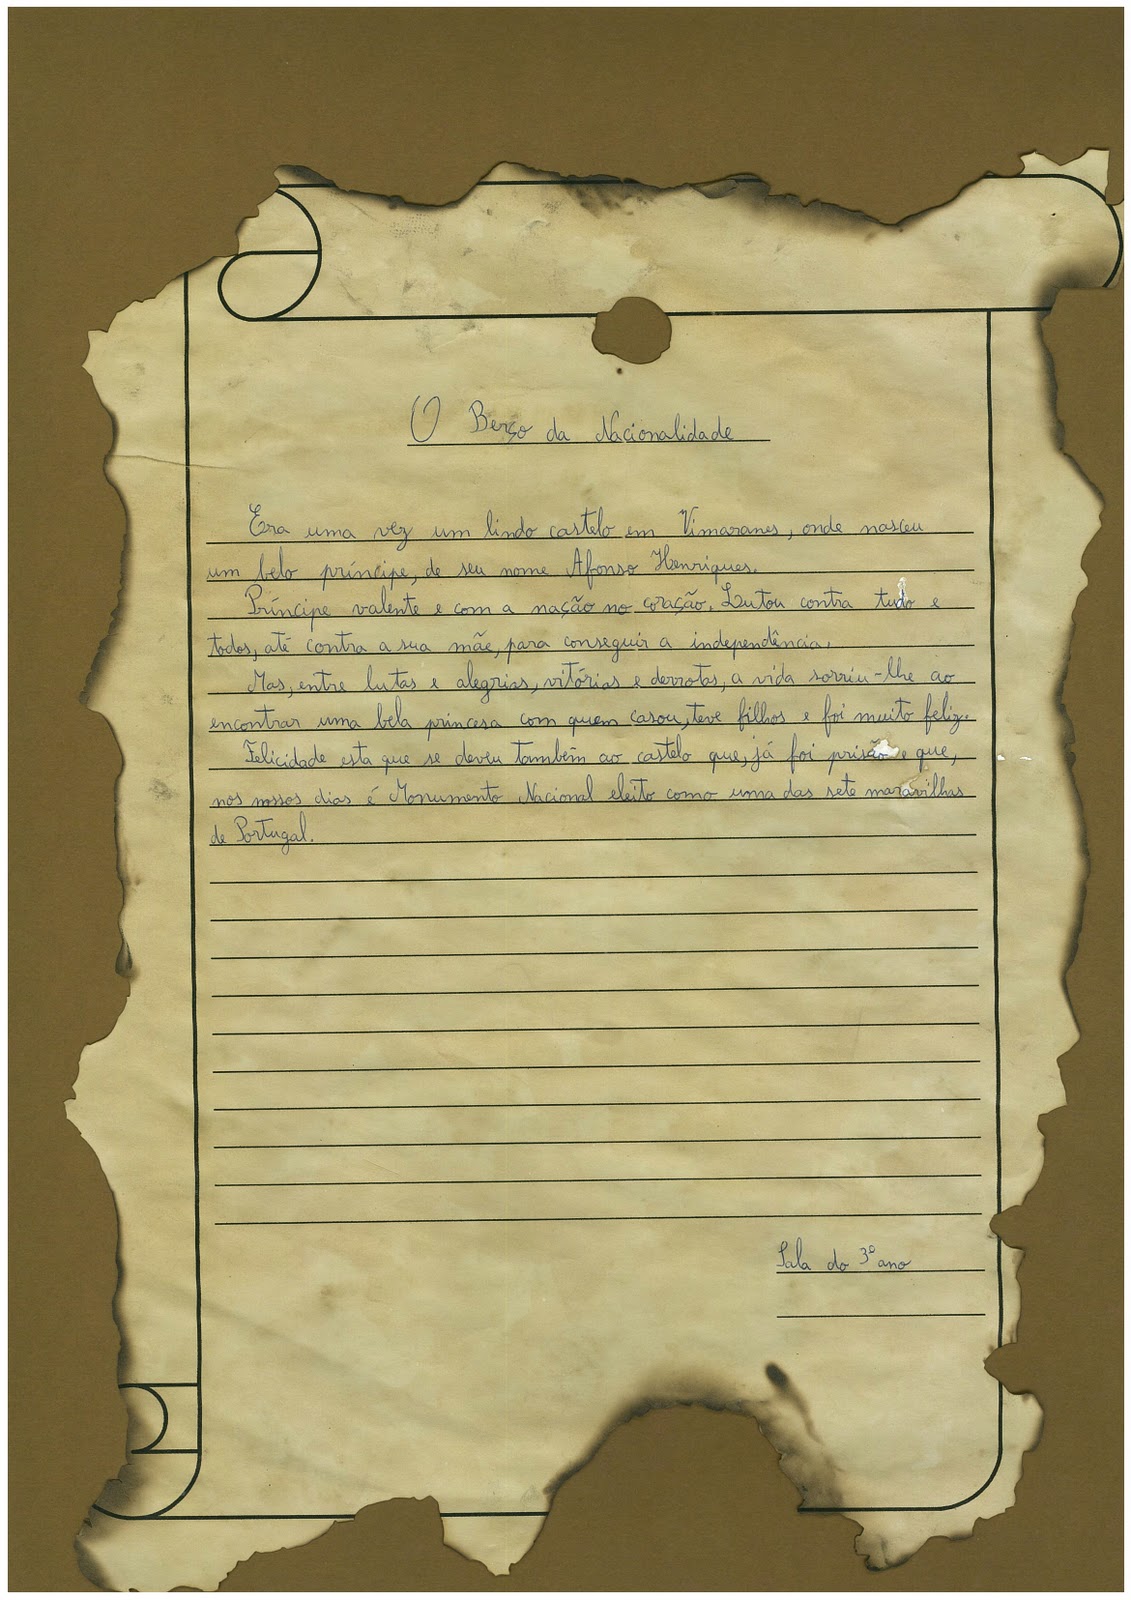 O Berço da Nacionalidade
Era uma vez um lindo castelo em Vimaranes, onde nasceu
um belo príncipe, de seu nome Afonso Henriques.
Príncipe valente e com a nação no coração. Lutou contra tudo e
todos, até contra a sua mãe, para conseguir a independência.
Mas, entre lutas e alegrias, vitórias e derrotas, a vida sorriu-lhe ao
encontrar uma bela princesa com quem casou, teve filhos e foi muito feliz.
Felicidade esta que se deveu também ao castelo que, já foi prisão e que,
nos nossos dias é Monumento Nacional eleito como uma das sete maravilhas
de Portugal.
Sala do 3º ano